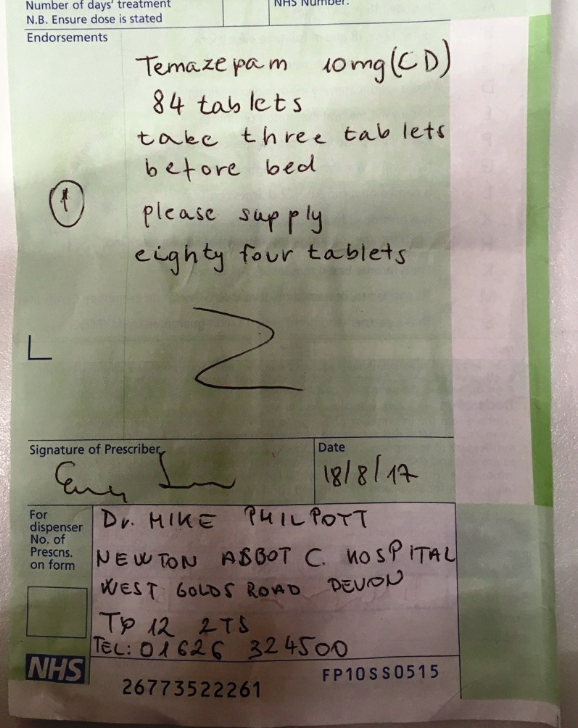 Number of days' treatment
N.B. Ensure dose is stated
NHS Number:
Endorsements
Temazepam 10mg (CD)
84 tablets
take three tablets
before bed
1
please supply
eighty four tablets
Signature of Prescriber
Date
18/8/17
For
dispenser
No. of
Prescns.
on form
Dr. MIKE PHILPOTT
NEWTON ABBOT C. HOSPITAL
WEST GOLDS ROAD DEVON
TQ 12 2TS
TEL: 01626 324500
NHS
26773522261
FP10SS0515